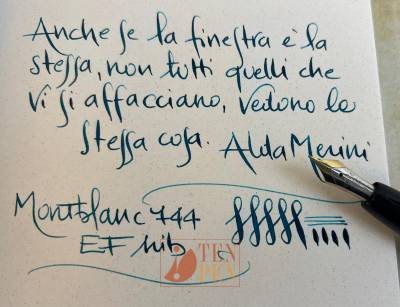 Anche se la finestra è la
stessa, non tutti quelli che
vi si affacciano, vedono le
stessa cosa. Alda Merini
Montblanc 744
EF nib
TEN
PEN